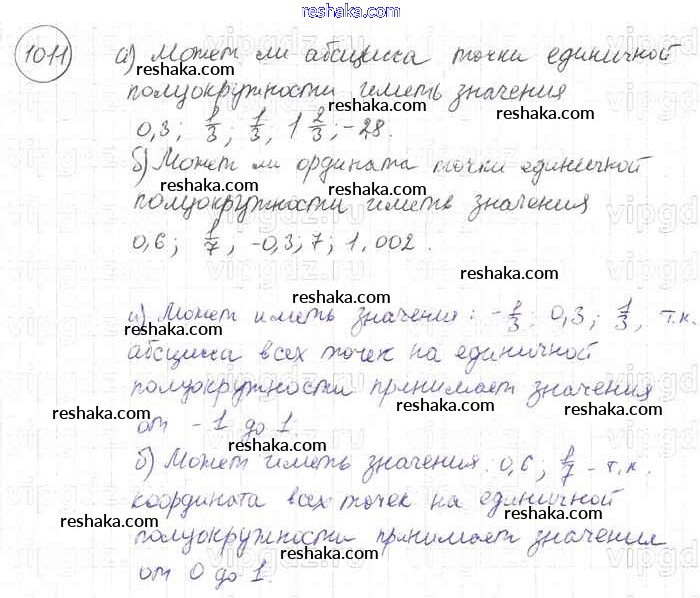 reshaka.com
1011 а) Может ли абсцисса точки единичной
reshaka.com reshaka.com
полуокружности иметь значения
reshaka.com
0,3; 1/3; 1/3, 1 2/3; -28.
reshaka.com
б) Может ли ордината точки единичной
reshaka.com reshaka.com
полуокружности иметь значения
reshaka.com
0,6; 1/7, -0,3; 7; 1,002.
reshaka.com
а) Может иметь значения: -1/3; 0,3; 1/3, т.к.
reshaka.com reshaka.com
абсцисса всех точек на единичной
reshaka.com
полуокружности принимает значения
reshaka.com reshaka.com
от -1 до 1.
reshaka.com
б) Может иметь значения: 0,6; 1/7 - т.к.
reshaka.com reshaka.com
координата всех точек на единичной
reshaka.com reshaka.com
полуокружности принимает значения
reshaka.com
от 0 до 1.
reshaka.com